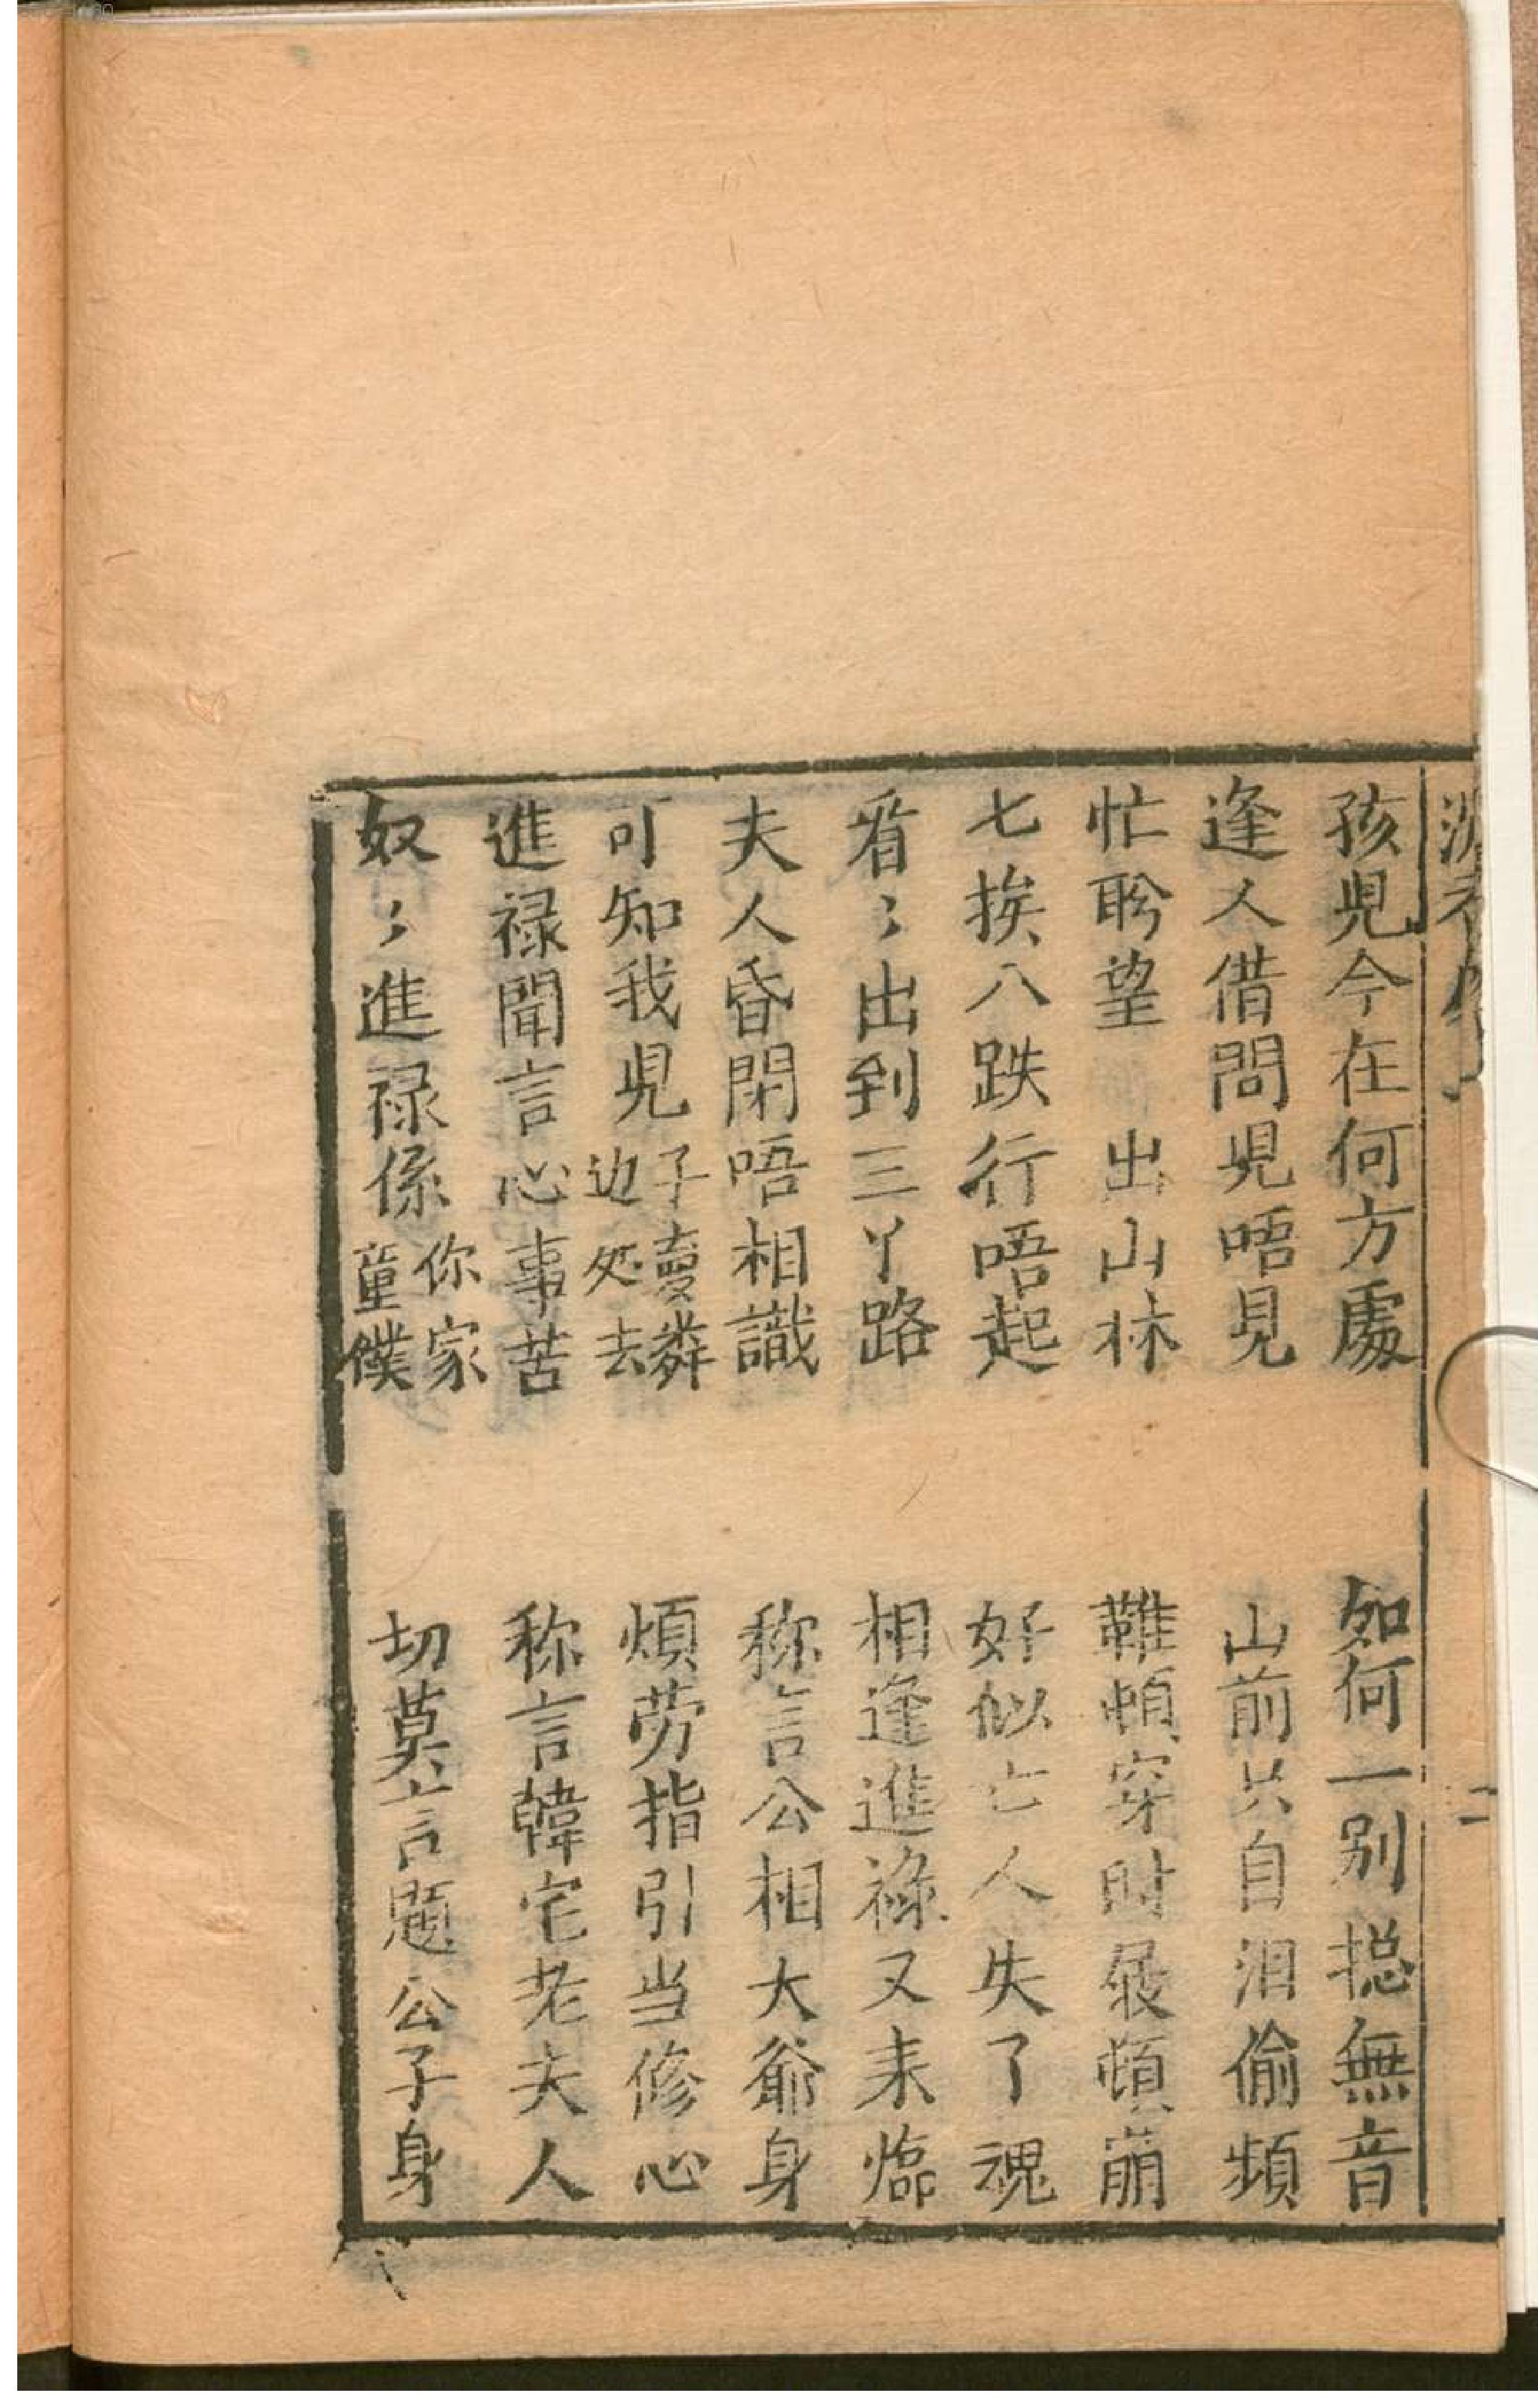 孩児今在何方處 如何一别揔無音
逢人借問児唔見 山前只自泪偷頻
忙盼望 出山林 鞋頓穿時髮頓崩
七挨八跌行唔起 好似亡人失了魂
看〻出到三丫路 相逢進祿又来臨
夫人昏閉唔相識 称言公相大爺身
可知我児子賣粦边処去 煩劳指引当修心
進禄聞言心事苦 称言韓宅老夫人
奴〻進禄係你家童僕 切莫言題公子身
二